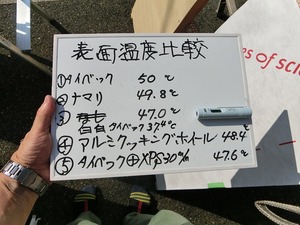 表面温度比較
①タイベック 50℃
②ナマリ 49.8℃
③ 47.0℃
白白タイベック37.4℃
④アルミクッキングホイル 48.4℃
⑤タイベック⊕XPS30% 47.6℃
es of sci